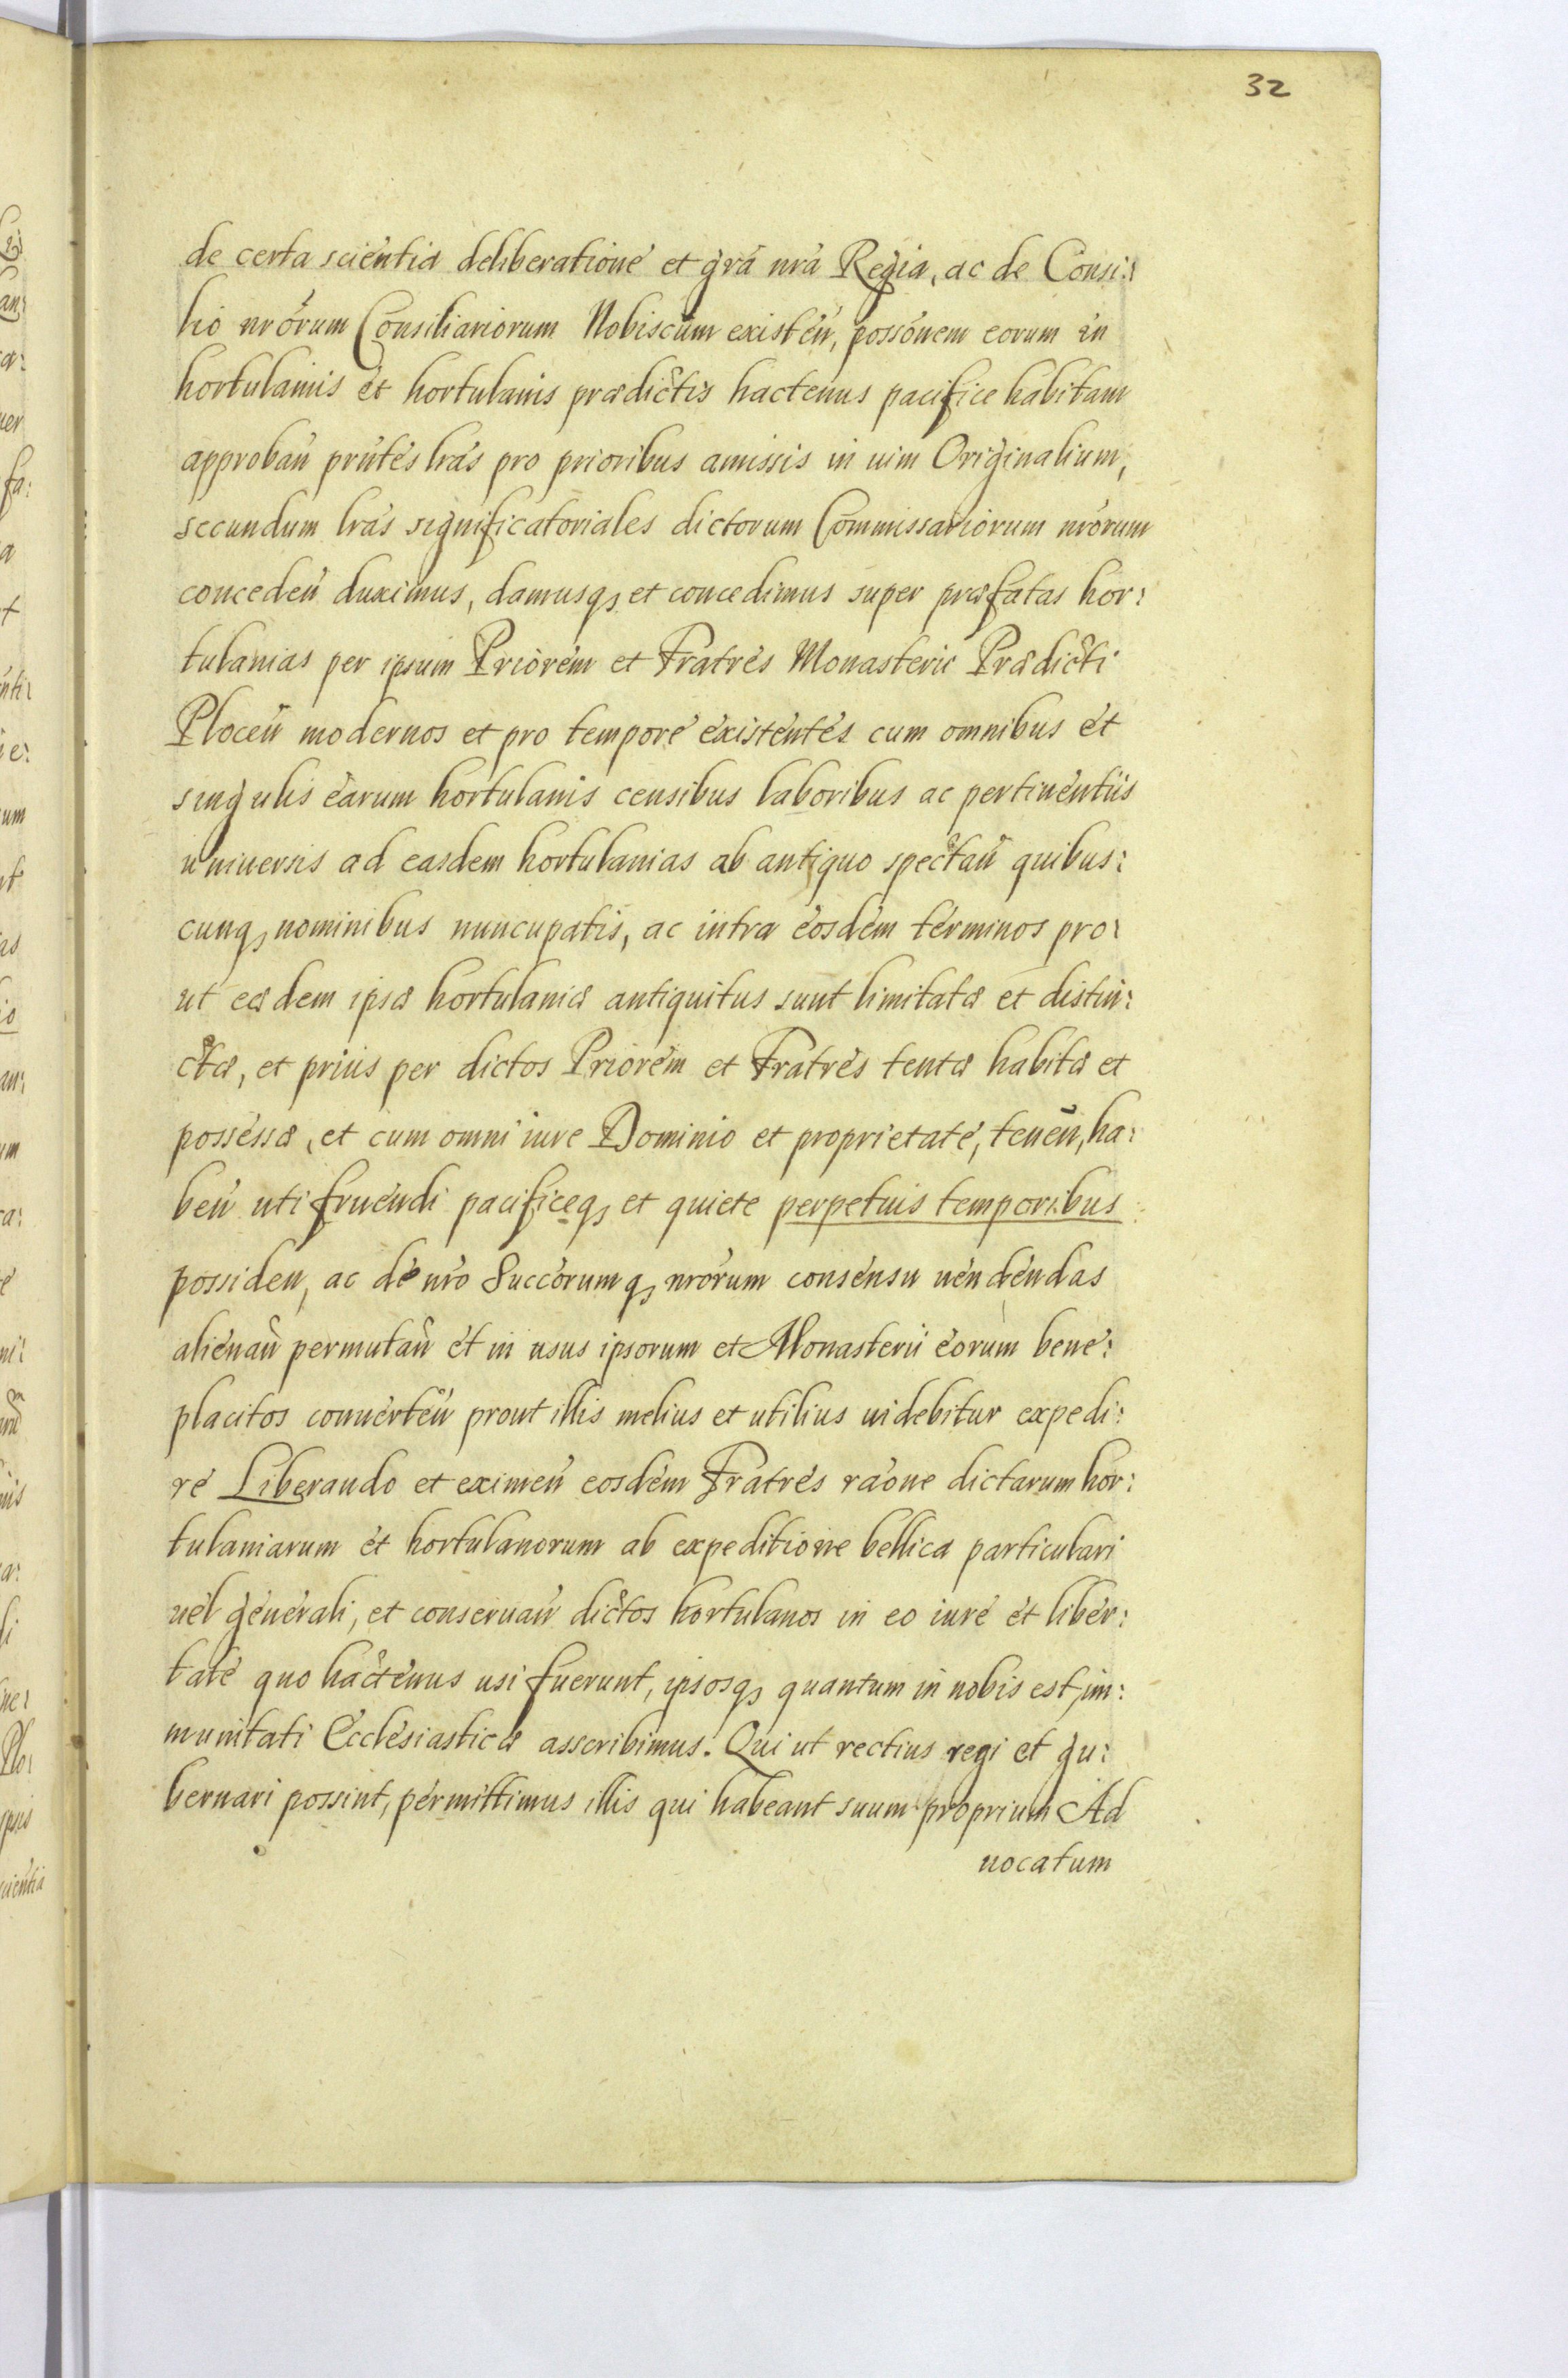 32
de certa scientia deliberatione et grã nrã Regia, ac de Consi:
lio nrõrum Consiliariorum Nobiscum existeñ, possõnem eorum in
hortulaniis et hortulanis prædictis hactenus pacifice habitam
approbañ prñtes lrãs pro prioribus amissis in uim Originalium,
secundum lrãs significatoriales dictorum Commissariorum nrõrum
concedeñ duximus, damusqȝ et concedimus super præfatas hor:
tulanias per ipsum Priorem et Fratres Monasterii Prædicti
Ploceñ modernos et pro tempore existentes cum omnibus et
singulis earum hortulanis censibus laboribus ac pertinentiis
uniuersis ad easdem hortulanias ab antiquo spectañ quibus:
cunqȝ nominibus nuncupatis, ac intra eosdem terminos pro:
ut eædem ipsæ hortulaniæ antiquitus sunt limitatæ et distin:
ctæ, et prius per dictos Priorem et Fratres tentæ habitæ et
possessæ, et cum omni iure Dominio et proprietate, teneñ, ha:
beñ uti fruendi pacificeqȝ et quiete perpetuis temporibus
possideñ, ac de nrõ Succõrumqȝ nrõrum consensu uendendas
alienañ permutañ et in usus ipsorum et Monasterii eorum bene:
placitos conuerteñ prout illis melius et utilius uidebitur expedi:
re Liberando et eximeñ eosdem Fratres raõne dictarum hor:
tulaniarum et hortulanorum ab expeditione bellica particulari
uel generali, et conseruañ dictos hortulanos in eo iure et liber:
tate quo hactenus usi fuerunt, ipsosqȝ quantum in nobis est, im:
munitati Ecclesiasticæ asscribimus. Qui ut rectius regi et gu:
bernari possint, permittimus illis qui habeant suum proprium Ad
uocatum